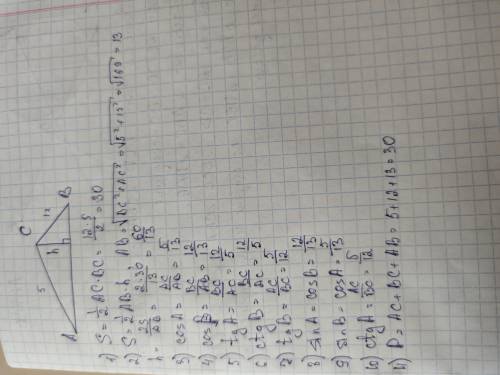 C
5
12
h
A
B
1) S = 1/2 AC·BC = 12·5/2 = 30
2) S = 1/2 AB·h, AB = √BC²+AC² = √5²+12² = √169 = 13
h = 2S/AB = 2·30/13 = 60/13
3) cosA = AC/AB = 5/13
4) cosB = BC/AB = 12/13
5) tgA = BC/AC = 12/5
6) ctgB = BC/AC = 12/5
7) tgB = AC/BC = 5/12
8) sinA = cosB = 12/13
9) sinB = cosA = 5/13
10) ctgA = AC/BC = 5/12
11) P = AC+BC+AB = 5+12+13 = 30